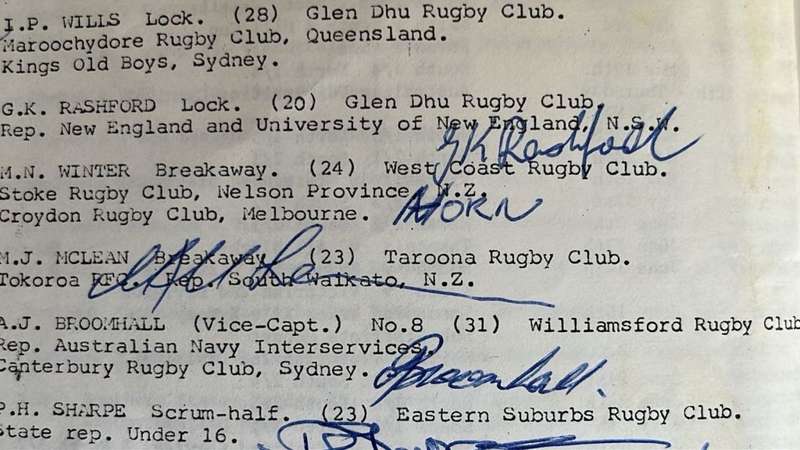 I.P. WILLS Lock. (28) Glen Dhu Rugby Club.
Maroochydore Rugby Club, Queensland.
Kings Old Boys, Sydney.
G.K. RASHFORD Lock. (20) Glen Dhu Rugby Club.
Rep. New England and University of New England, N.S.W.
GK Rashford
M.N. WINTER Breakaway. (24) West Coast Rugby Club.
Stoke Rugby Club, Nelson Province, N.Z.
Croydon Rugby Club, Melbourne.
M.J. MCLEAN Breakaway (23) Taroona Rugby Club.
Tokoroa RFC. Rep. South Waikato, N.Z.
A.J. BROOMHALL (Vice-Capt.) No.8 (31) Williamsford Rugby Club
Rep. Australian Navy Interservices.
Canterbury Rugby Club, Sydney.
Broomhall.
P.H. SHARPE Scrum-half. (23) Eastern Suburbs Rugby Club.
State rep. Under 16.